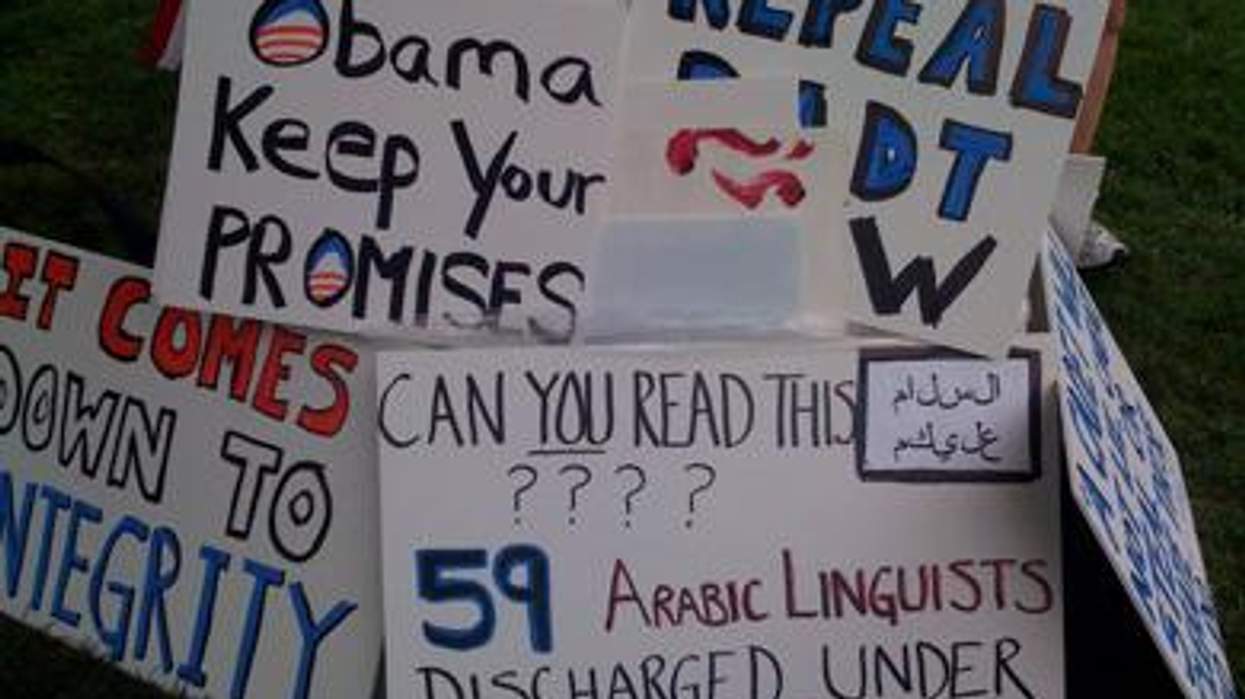 Obama
Keep Your
PROMISES
REPEAL
DT
W
IT COMES
DOWN TO
NTEGRITY
CAN YOU READ THIS
السلام
عليكم
? ? ? ?
59 ARABIC LINGUISTS
DISCHARGED UNDER